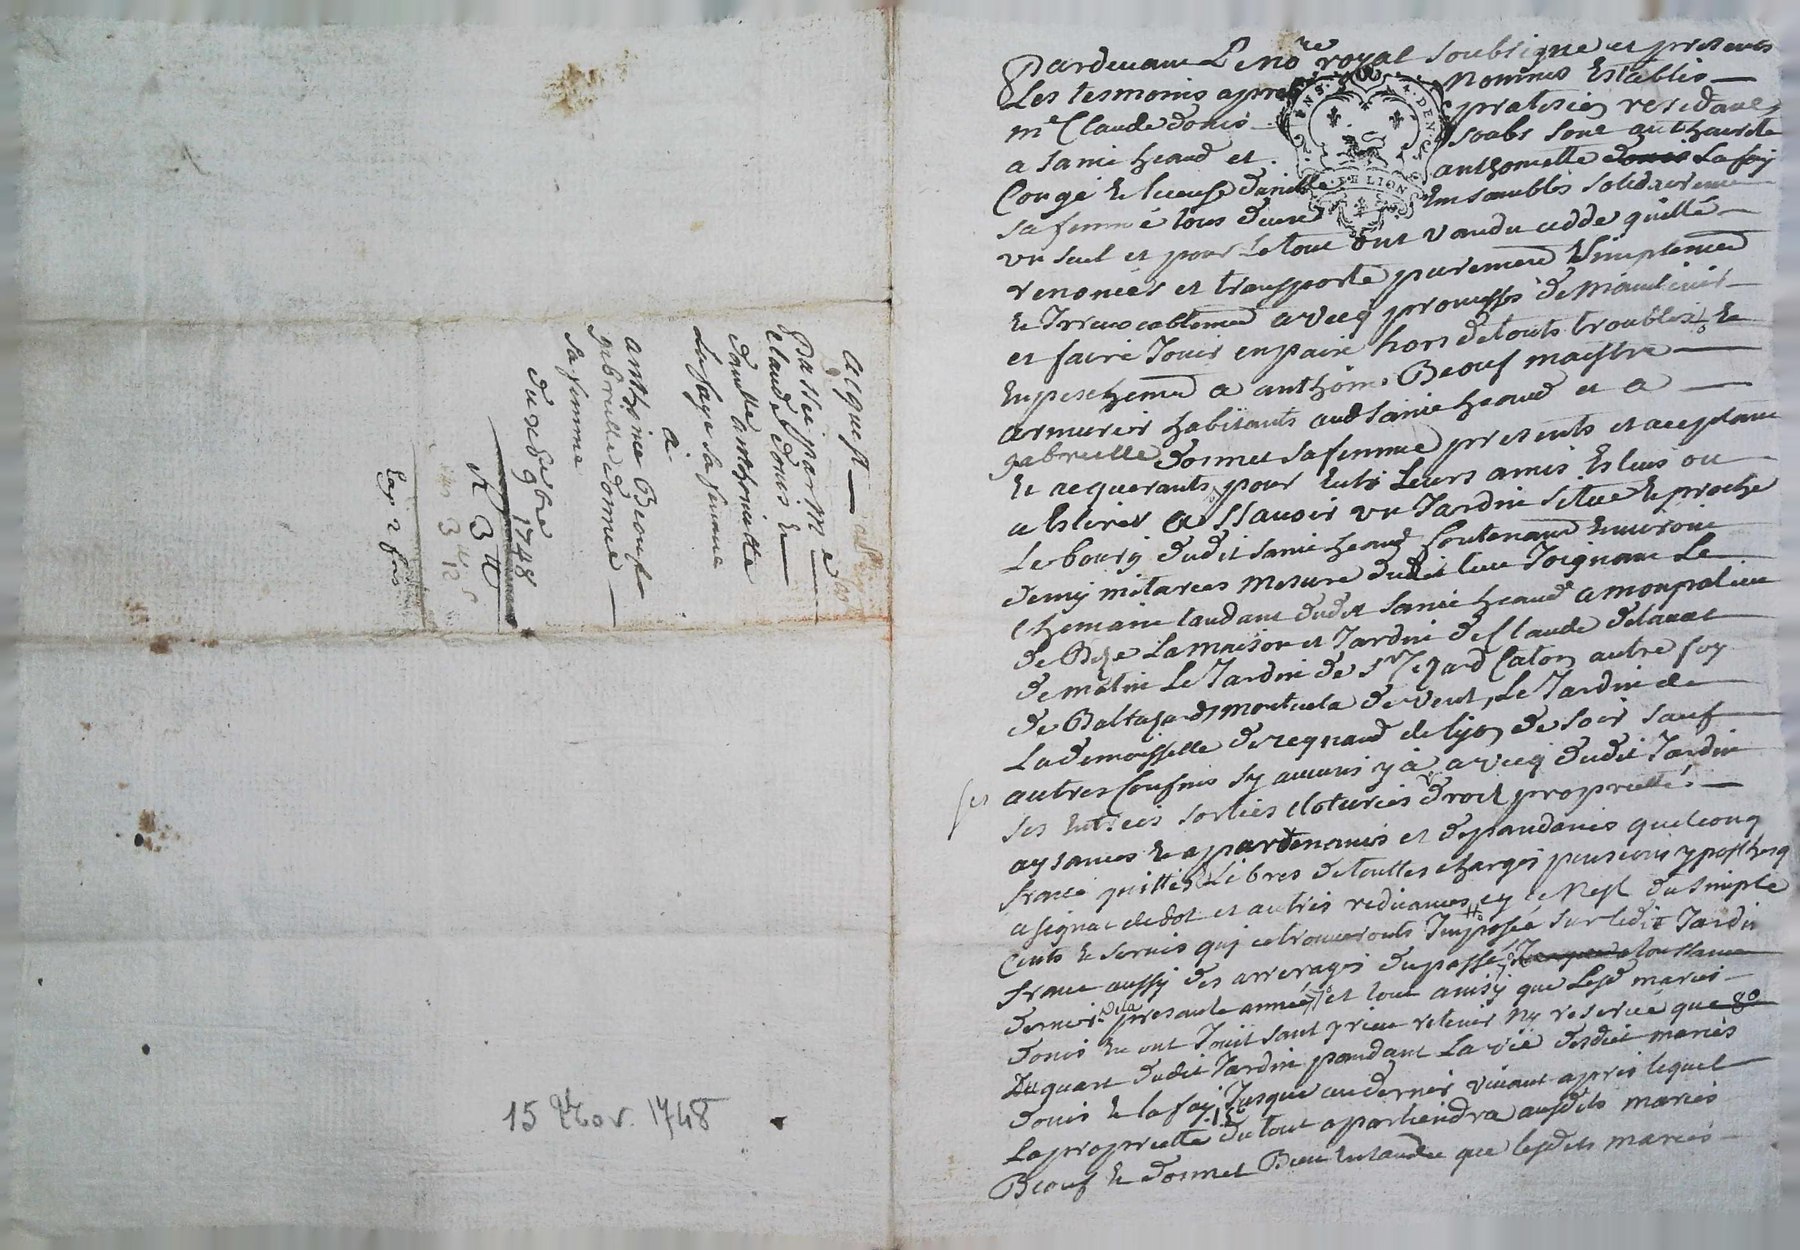 acquest
Passé par Me
Claude Donis et
danlle anthoinette
Lafaye sa femme
a
anthoine Beouf
gabrielle donnet
sa femme
du xe 9bre 1748
R 3 tt
3 tt 12 s
15 9bor. 1748
Pardevant Le nore royal soubsigné et presents
Les tesmoins apres nommés Establis
me Claude donis praticien residant
a sainct heand et soubs son authorité
Congé et licence anthoinette donis Lafay
sa femme tous deux Ensamblés solidairement
un seul et pour Le tout ont vandu cedde quitté
renoncés et transporté purement et simplement
et Irrevocablement avecq promesses de maintenir
et faire Jouir en paix hors de touts troubles et
Enpeschement a anthoine Beouf maistre
armurier habitants aud sainct heand et a
gabrielle donnet sa femme presents et aceptant
et requerants pour Eux Leurs amis Esleus ou
a Eslires a sçavoir un Jardin situé et proche
Le bourg dudit sainct heand contenant Environ
demy mitarées mesure dudit lieu Joignant Le
chemain tandant dudit sainct heand a monpalieu
de Bize La maison et Jardin de Claude delavat
de matin Le Jardin de Sr Caton autre foy
de Baltasard montuela de vent, Le Jardin de
La demoisselle deregnaud de lyon de soir sauf
autres Confins sy aucuns y a avecq dudit Jardin
ses Entrées sorties clotures droit proprietté
aysances et apartenances et depandances quelconq
franc quitte Libres de touttes charges pensions ypothecq
asignat de dot et autres reduances, cy ce Nest du simple
Cents et servis quj ce trouveronts Imposéé sur ledit Jardin
franc aussy des arrerages du passé toussaint
dernier de la presante année, et tout ainsy que Lesd mariés
donis En ont Jouit sant y rien retenir Ny reservéé que
Du quart dudit Jardin pandant La vie desdict mariés
donis et lafay Jusque au dernier vivant apres lequel
La proprietté du tout apartiendra ausdits mariés
Beouf et donnet Bien Entandu que lesdits mariés